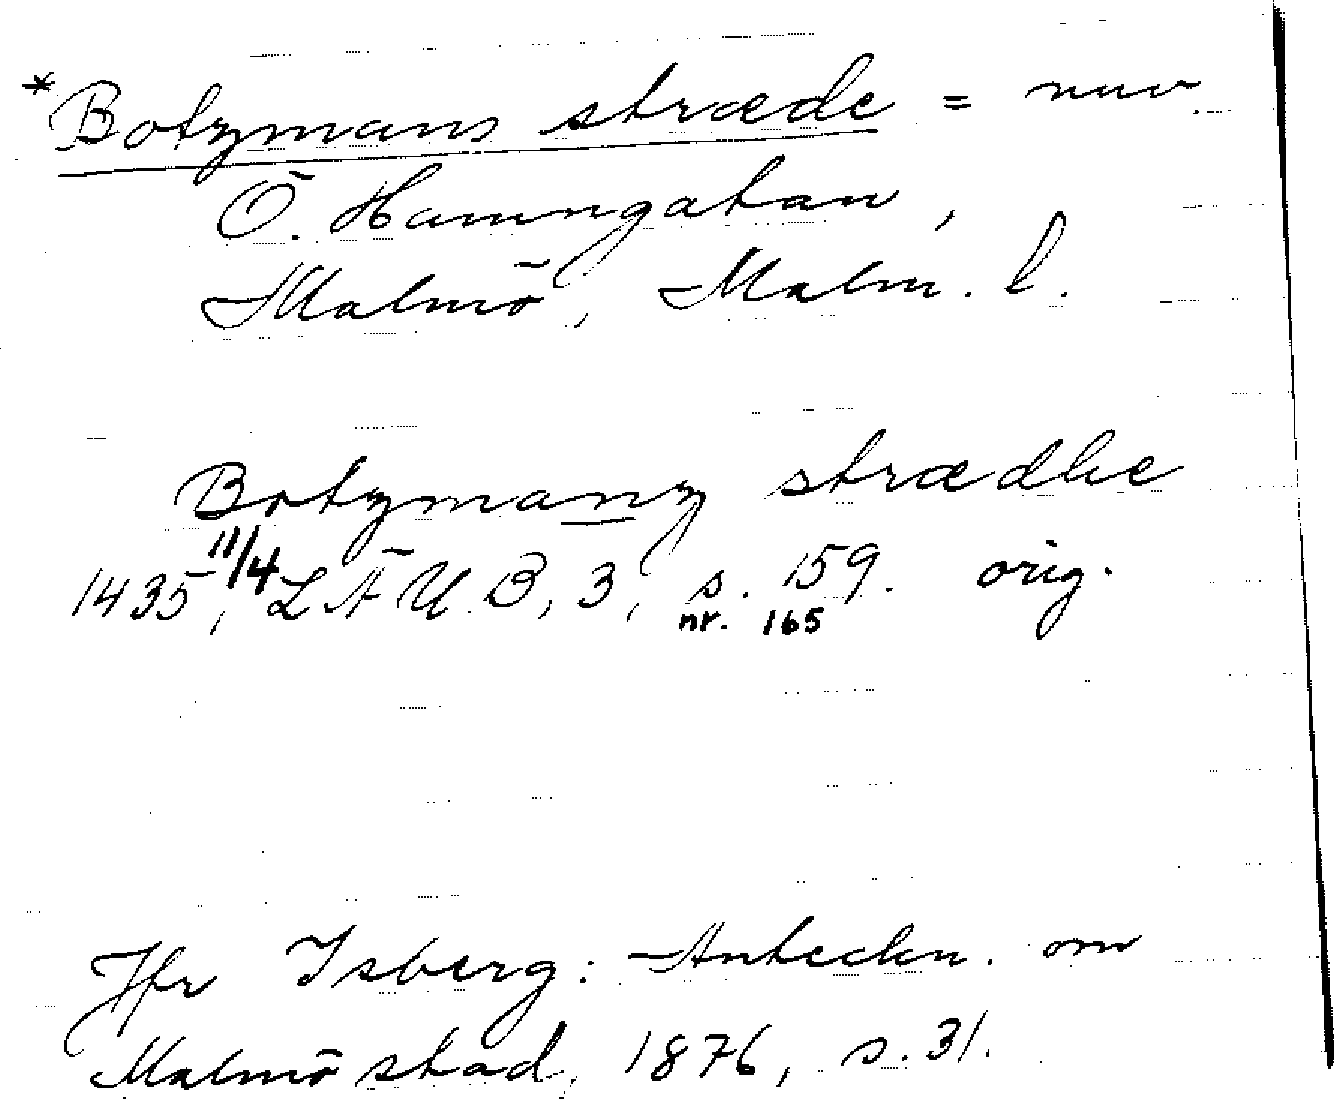 *Botzmans stræde = nuv.
Ö. Hamngatan,
Malmö, Malm. l.
Botzmanz strædhe
1435 11/4, LÄUB, 3, s. 159. orig.
nr. 165
Jfr Isberg: Anteckn. om
Malmö stad, 1876, s. 31.